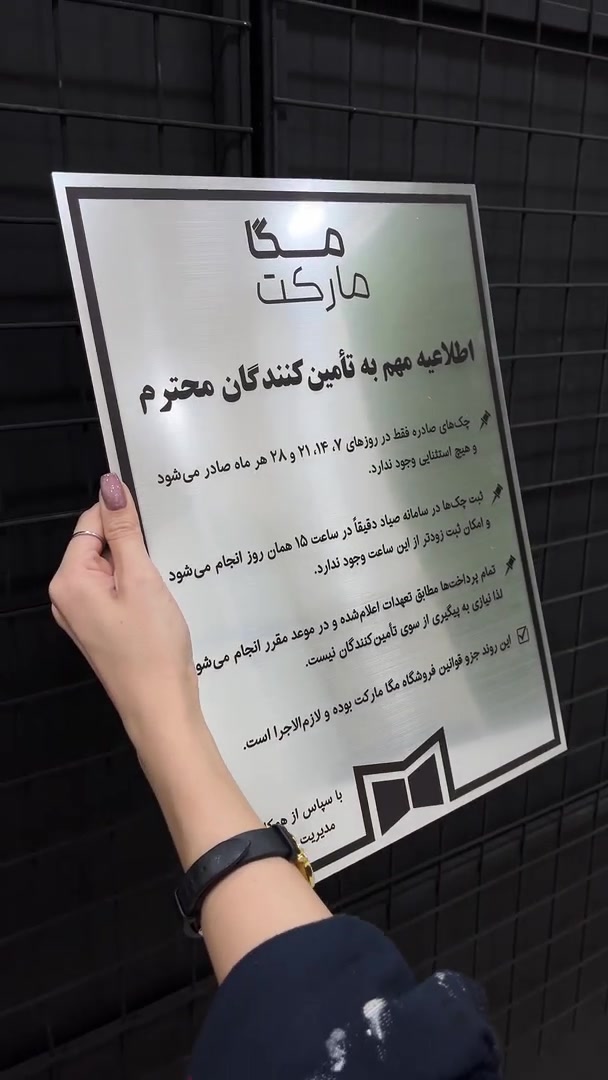 مگا
مارکت
اطلاعیه مهم به تأمین‌کنندگان محترم
چک‌های صادره فقط در روزهای ۷، ۱۴، ۲۱ و ۲۸ هر ماه صادر می‌شود
و هیچ استثنایی وجود ندارد.
ثبت چک‌ها در سامانه صیاد دقیقاً در ساعت ۱۵ همان روز انجام می‌شود
و امکان ثبت زودتر از این ساعت وجود ندارد.
تمام پرداخت‌ها مطابق تعهدات اعلام‌شده و در موعد مقرر انجام می‌شو
لذا نیازی به پیگیری از سوی تأمین‌کنندگان نیست.
این روند جزو قوانین فروشگاه مگا مارکت بوده و لازم‌الاجرا است.
با سپاس از
مدیریت